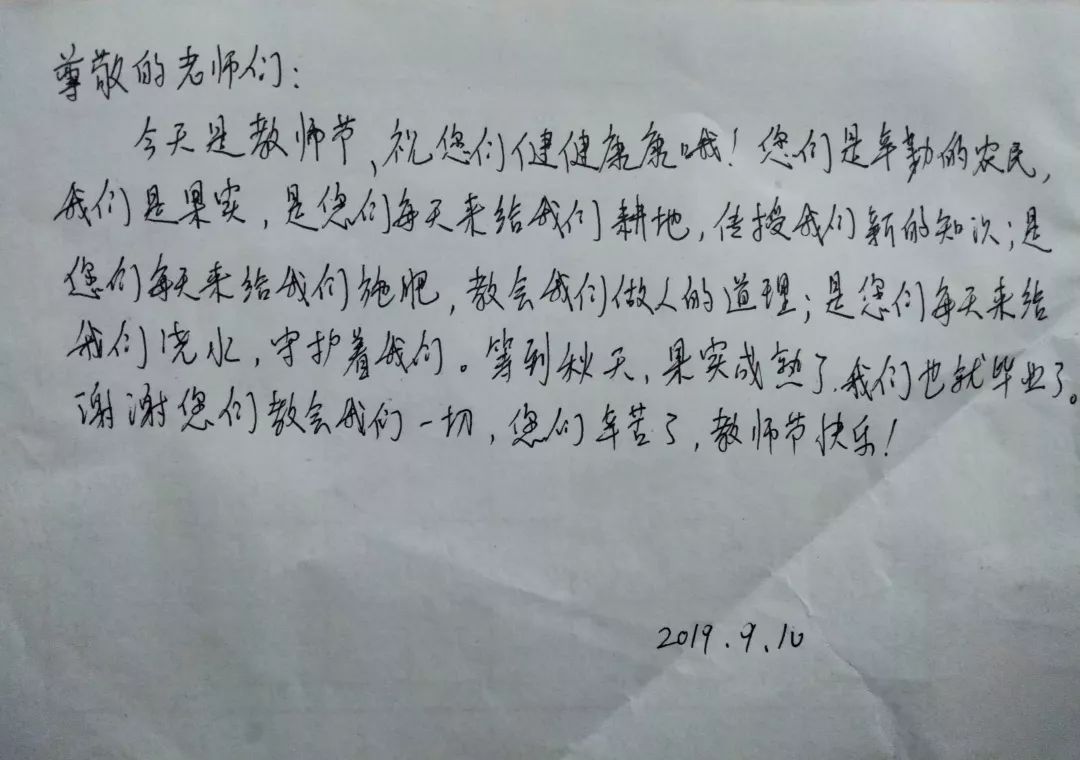 尊敬的老师们：
今天是教师节，祝您们健健康康哦！您们是辛勤的农民，
我们是果实，是您们每天来给我们耕地，传授我们新的知识；是
您们每天来给我们施肥，教会我们做人的道理；是您们每天来给
我们浇水，守护着我们。等到秋天，果实成熟了，我们也就毕业了。
谢谢您们教会我们一切，您们辛苦了，教师节快乐！
2019.9.10